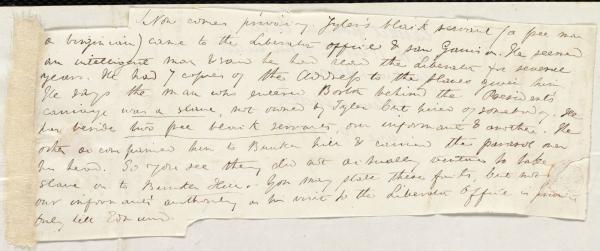 Now comes privacy. Tyler's black servant (a free man
a virginian) came to the Liberator office & saw Garrison. He seemed
an intelligent man & said he had read the Liberator for several
years. He had 7 copies of the Address to the Slaves given him
He says the man who entered Boston behind the Presidents
carriage was a slave, not owned by Tyler but hired of somebody. He
has beside two free black servants, our informant & another. The
other accompanied him to Bunker hill & carried the parasol over
his head. So you see they did not actually venture to take
slave on to Bunker Hill. You may state these facts, but not
our informants authority as his visit to the Liberator Office is private
only tell Edmund.